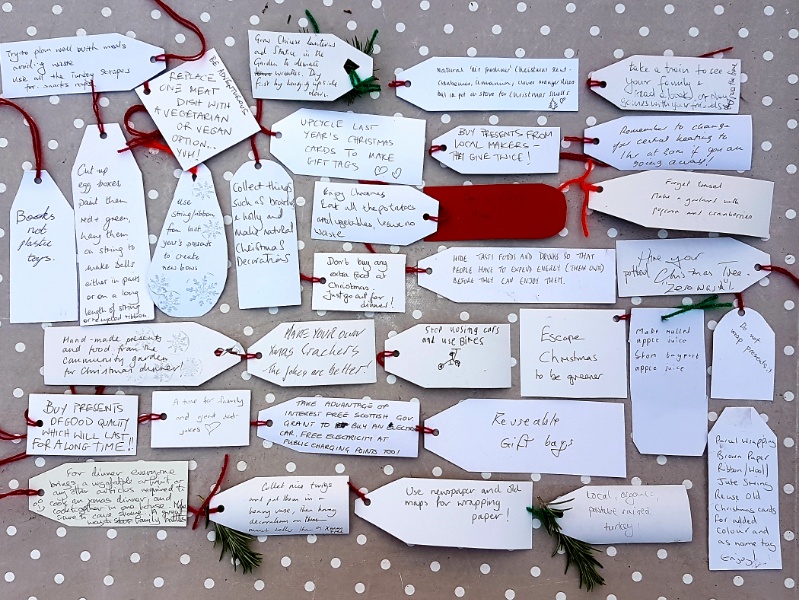 Try to plan well with meals
avoiding waste
use all the Turkey scraps
for snacks
BE ADVENTUROUS
REPLACE
ONE MEAT
DISH WITH A
VEGETARIAN
OR VEGAN
OPTION...
YUM!
Grow Chinese lanterns
and Statice in the
Garden to
wreathes. Dry
by hanging upside
down.
Natural 'air freshner' Christmas scent -
cinnamon, clove orange slices
in pot on stove for Christmas smells
take a train to see
your family &
read a book
games with your friends
Cut up
egg boxes
paint them
red + green,
hang them
on string to
make bells
either in pairs
or on a long
length of string
or recycled ribbon.
UPCYCLE LAST
YEAR'S CHRISTMAS
CARDS TO MAKE
GIFT TAGS
BUY PRESENTS FROM
LOCAL MAKERS -
GIVE TWICE!
Remember to change
your central heating to
1hr at 20c if you are
going away!
Books
not
plastic
toys.
Use
string/ribbon
from last
year's presents
to create
new bows
Collect things
such as
holly and
make natural
Christmas
Decorations
Enjoy Christmas
Eat all the potatoes
and vegetables, leave no
waste
Forget tinsel
Make a garland with
popcorn and cranberries
Don't buy any
extra food at
Christmas.
Just go out for
dinner!
HIDE TASTY FOODS AND DRINKS SO THAT
PEOPLE HAVE TO EXPEND ENERGY (THEIR OWN)
BEFORE THEY CAN ENJOY THEM.
Hire your
potted Christmas Tree -
Zero Waste!
Hand-made presents
and food from the
community garden
for Christmas dinner!
MAKE YOUR OWN
Xmas Crackers
- the jokes are better!
Stop using cars
and use Bikes
Escape
Christmas
to be greener
Make mulled
apple juice
from
apple juice
Do not
wrap presents
BUY PRESENTS
OF GOOD QUALITY
WHICH WILL LAST
FOR A LONG TIME!!
A time for family
and good
jokes
TAKE ADVANTAGE OF
INTEREST FREE SCOTTISH GOV.
GRANT TO BUY AN ELECTRIC
CAR. FREE ELECTRICITY AT
PUBLIC CHARGING POINTS TOO!
Reuseable
Gift bags
Parcel Wrapping
Brown Paper
Ribbon (Wool)
Jute String
Reuse Old
Christmas cards
for added
colour and
as name tag
Enjoy!
For dinner everyone
brings a vegetable or fruit or
any other articles required to
cook an xmas dinner, and
cook together in one house.
Collect nice twigs
and put them in a
heavy vase, then hang
decorations on them
Use newspaper and old
maps for wrapping
paper!
Local, organic,
pasture raised
turkey